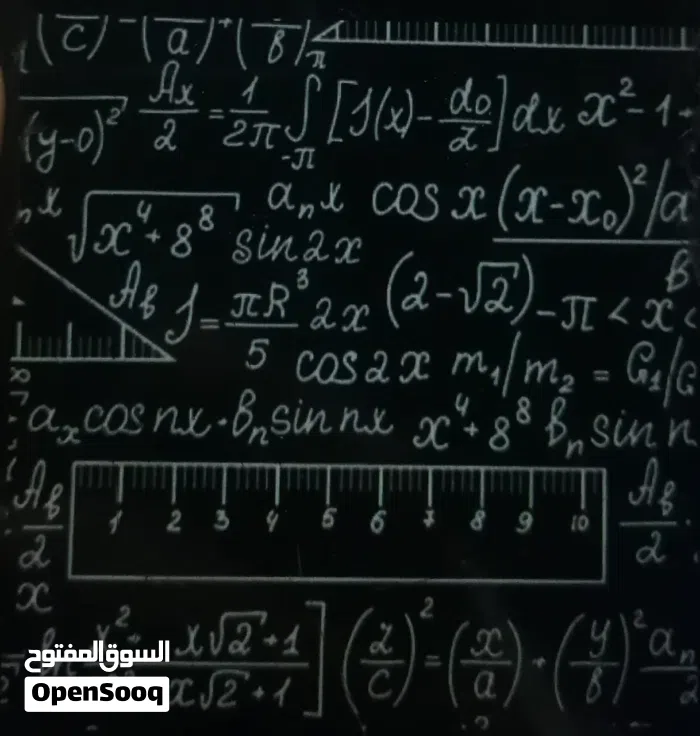 (‾/c) - (‾/a) + (‾/b) π
(y-0)² Ax/2 = 1/2π ∫ -π [J(x) - do/2] dx x² - 1 +
ₙx √x⁴+8⁸ aₙx cos x (x-x₀)²/a
sin2x B
Aβ J = πR³/5 2x (2-√2) -π < x <
cos2x m₁/m₂ = G₁/G
aₓcosnx · Bₙsinnx x⁴+8⁸ Bₙsin n
Aβ/2 1 2 3 4 5 6 7 8 9 10 Aβ/2
x
x√2+1 / x√2+1 ] (z/c)² = (x/a) + (y/b)² aₙ/2
السوق المفتوح
OpenSooq